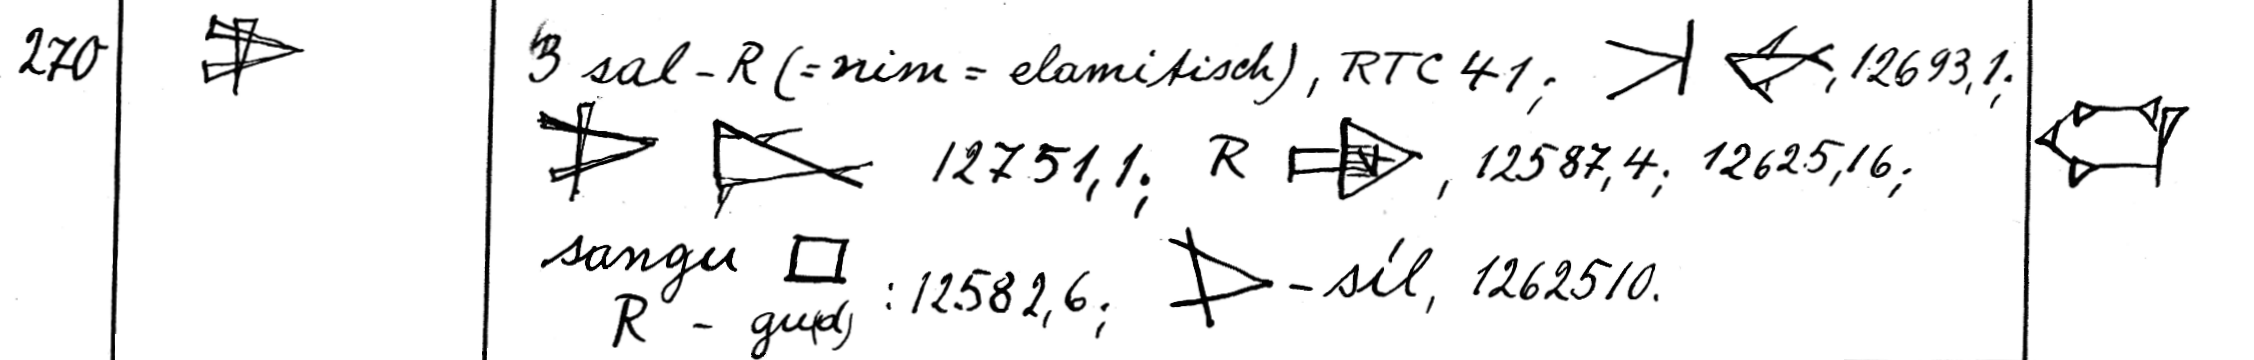 270 3 sal - R (= nim = elamitisch), RTC 41; , 12693,1;
12751,1; R , 12587,4; 12625,16;
sangu : 12582,6; - síl, 1262510.
R - gu(d)